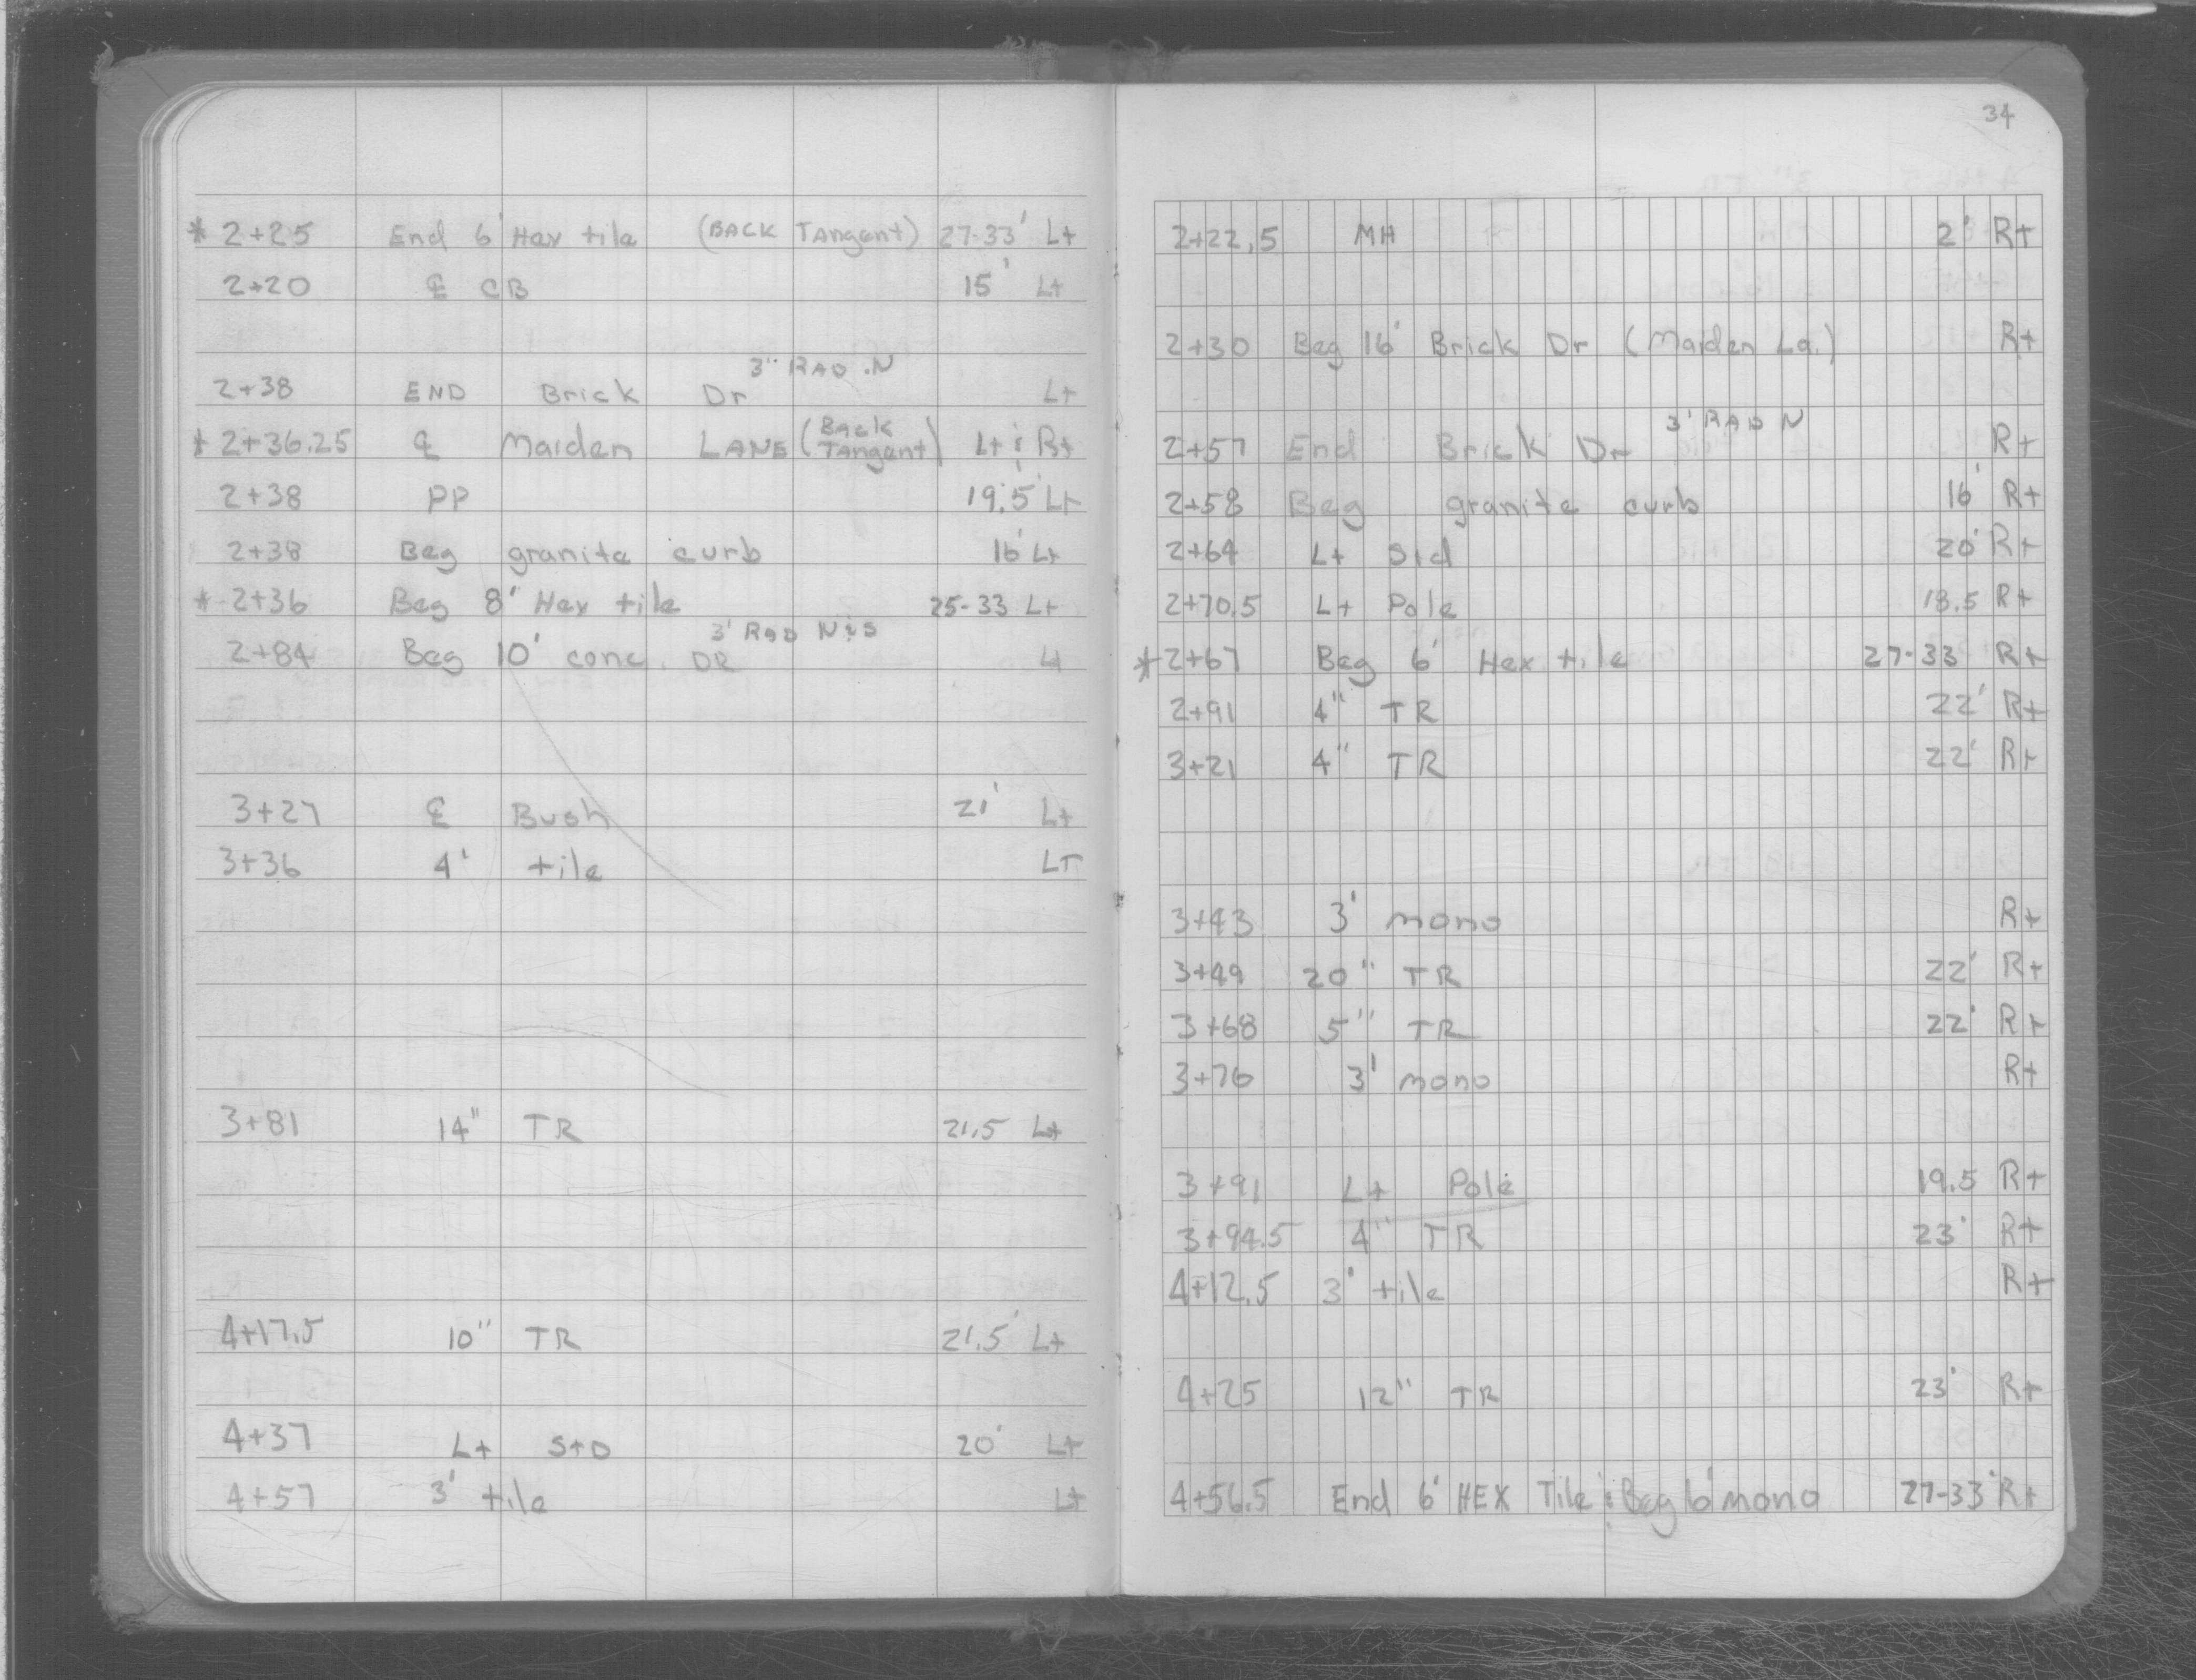 * 2+25 End 6' Hex tile (BACK TAngent) 27-33' Lt
2+20 ℄ CB 15' Lt
3' RAD .N
2+38 END Brick Dr Lt
* 2+36.25 ℄ Maiden LANE (Back Tangent) Lt & Rt
2+38 PP 19.5' Lt
2+38 Beg granite curb 16' Lt
* 2+36 Beg 8' Hex tile 25-33 Lt
3' RAD N&S
2+84 Beg 10' conc. DR Lt
3+27 ℄ Bush 21' Lt
3+36 4' tile LT
3+81 14" TR 21.5 Lt
4+17.5 10" TR 21.5' Lt
4+37 Lt StD 20' Lt
4+57 3' tile Lt
34
2+22.5 MH 2' Rt
2+30 Beg 16' Brick Dr (Maiden La.) Rt
3' RAD N
2+57 End Brick Dr Rt
2+58 Beg granite curb 16' Rt
2+64 Lt Std 20' Rt
2+70.5 Lt Pole 18.5 Rt
* 2+67 Beg 6' Hex tile 27-33 Rt
2+91 4" TR 22' Rt
3+21 4" TR 22' Rt
3+43 3' mono Rt
3+49 20" TR 22' Rt
3+68 5" TR 22' Rt
3+76 3' mono Rt
3+91 Lt Pole 19.5 Rt
3+94.5 4" TR 23' Rt
4+12.5 3' tile Rt
4+25 12" TR 23' Rt
4+56.5 End 6' HEX Tile & Beg 6' mono 27-33' Rt